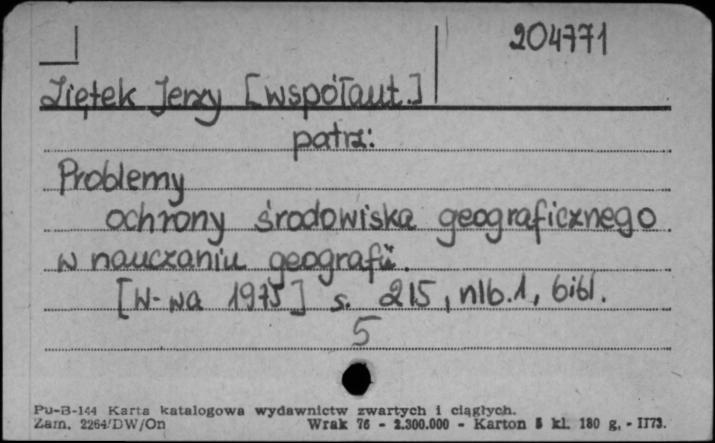 204771
Ziętek Jerzy [współaut.]
patrz:
Problemy
ochrony środowiska geograficznego
w nauczaniu geografii.
[W-wa 1975] s. 215, nlb. 1, bibl.
5
Pu-B-144 Karta katalogowa wydawnictw zwartych i ciągłych.
Zam. 2264/DW/On Wrak 76 - 2.300.000 - Karton 5 kl. 180 g. - II73.